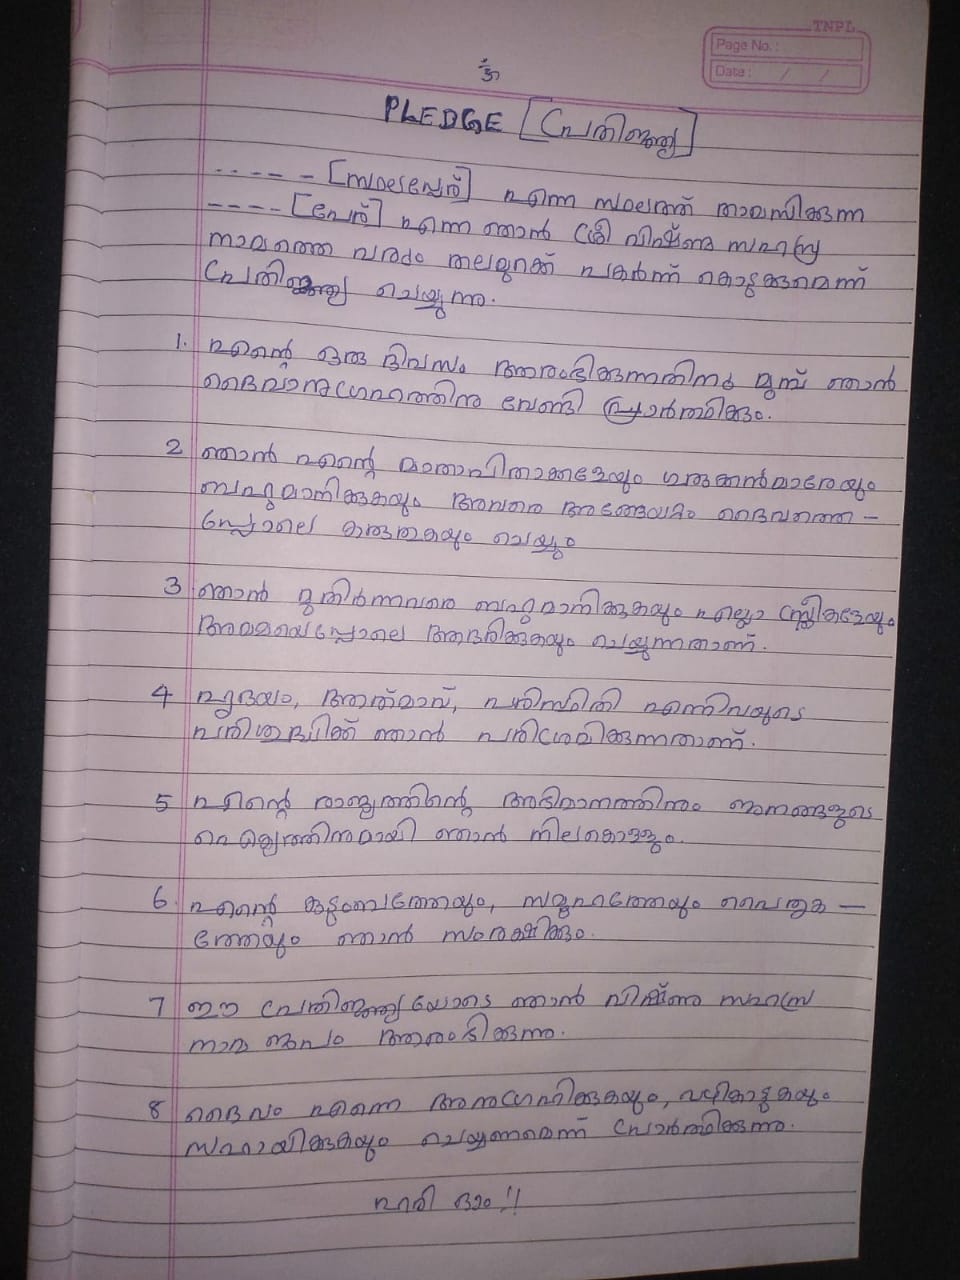 TNPL
Page No.:
Date: / /
ഓം
PLEDGE [പ്രതിജ്ഞ]
----- [സ്ഥലപ്പേര്] എന്ന സ്ഥലത്ത് താമസിക്കുന്ന
---- [പേര്] എന്ന ഞാൻ ശ്രീ വിഷ്ണു സഹസ്ര
നാമത്തെ വരും തലമുറക്ക് പകർന്ന് കൊടുക്കുമെന്ന്
പ്രതിജ്ഞ ചെയ്യുന്നു.
1. എന്റെ ഒരു ദിവസം ആരംഭിക്കുന്നതിനു മുമ്പ് ഞാൻ
ദൈവാനുഗ്രഹത്തിനു വേണ്ടി പ്രാർത്ഥിക്കും.
2 ഞാൻ എന്റെ മാതാപിതാക്കളേയും ഗുരുക്കൻമാരേയും
ബഹുമാനിക്കുകയും അവരെ അങ്ങേയറ്റം ദൈവത്തെ-
പ്പോലെ കരുതുകയും ചെയ്യും
3 ഞാൻ മുതിർന്നവരെ ബഹുമാനിക്കുകയും എല്ലാ സ്ത്രീകളേയും
അമ്മയെപ്പോലെ ആദരിക്കുകയും ചെയ്യുന്നതാണ്.
4 ഹൃദയം, ആത്മാവ്, പരിസ്ഥിതി എന്നിവയുടെ
പരിശുദ്ധിക്ക് ഞാൻ പരിശ്രമിക്കുന്നതാണ്.
5 എന്റെ രാജ്യത്തിന്റെ അഭിമാനത്തിനും ജനങ്ങളുടെ
ഐക്യത്തിനുമായി ഞാൻ നിലകൊള്ളും.
6. എന്റെ കുടുംബത്തേയും, സമൂഹത്തേയും പൈതൃക-
ത്തേയും ഞാൻ സംരക്ഷിക്കും.
7 ഈ പ്രതിജ്ഞയോടെ ഞാൻ വിഷ്ണു സഹസ്ര
നാമ ജപം ആരംഭിക്കുന്നു.
8 ദൈവം എന്നെ അനുഗ്രഹിക്കുകയും, വഴികാട്ടുകയും
സഹായിക്കുകയും ചെയ്യണമെന്ന് പ്രാർത്ഥിക്കുന്നു.
ഹരി ഓം!!